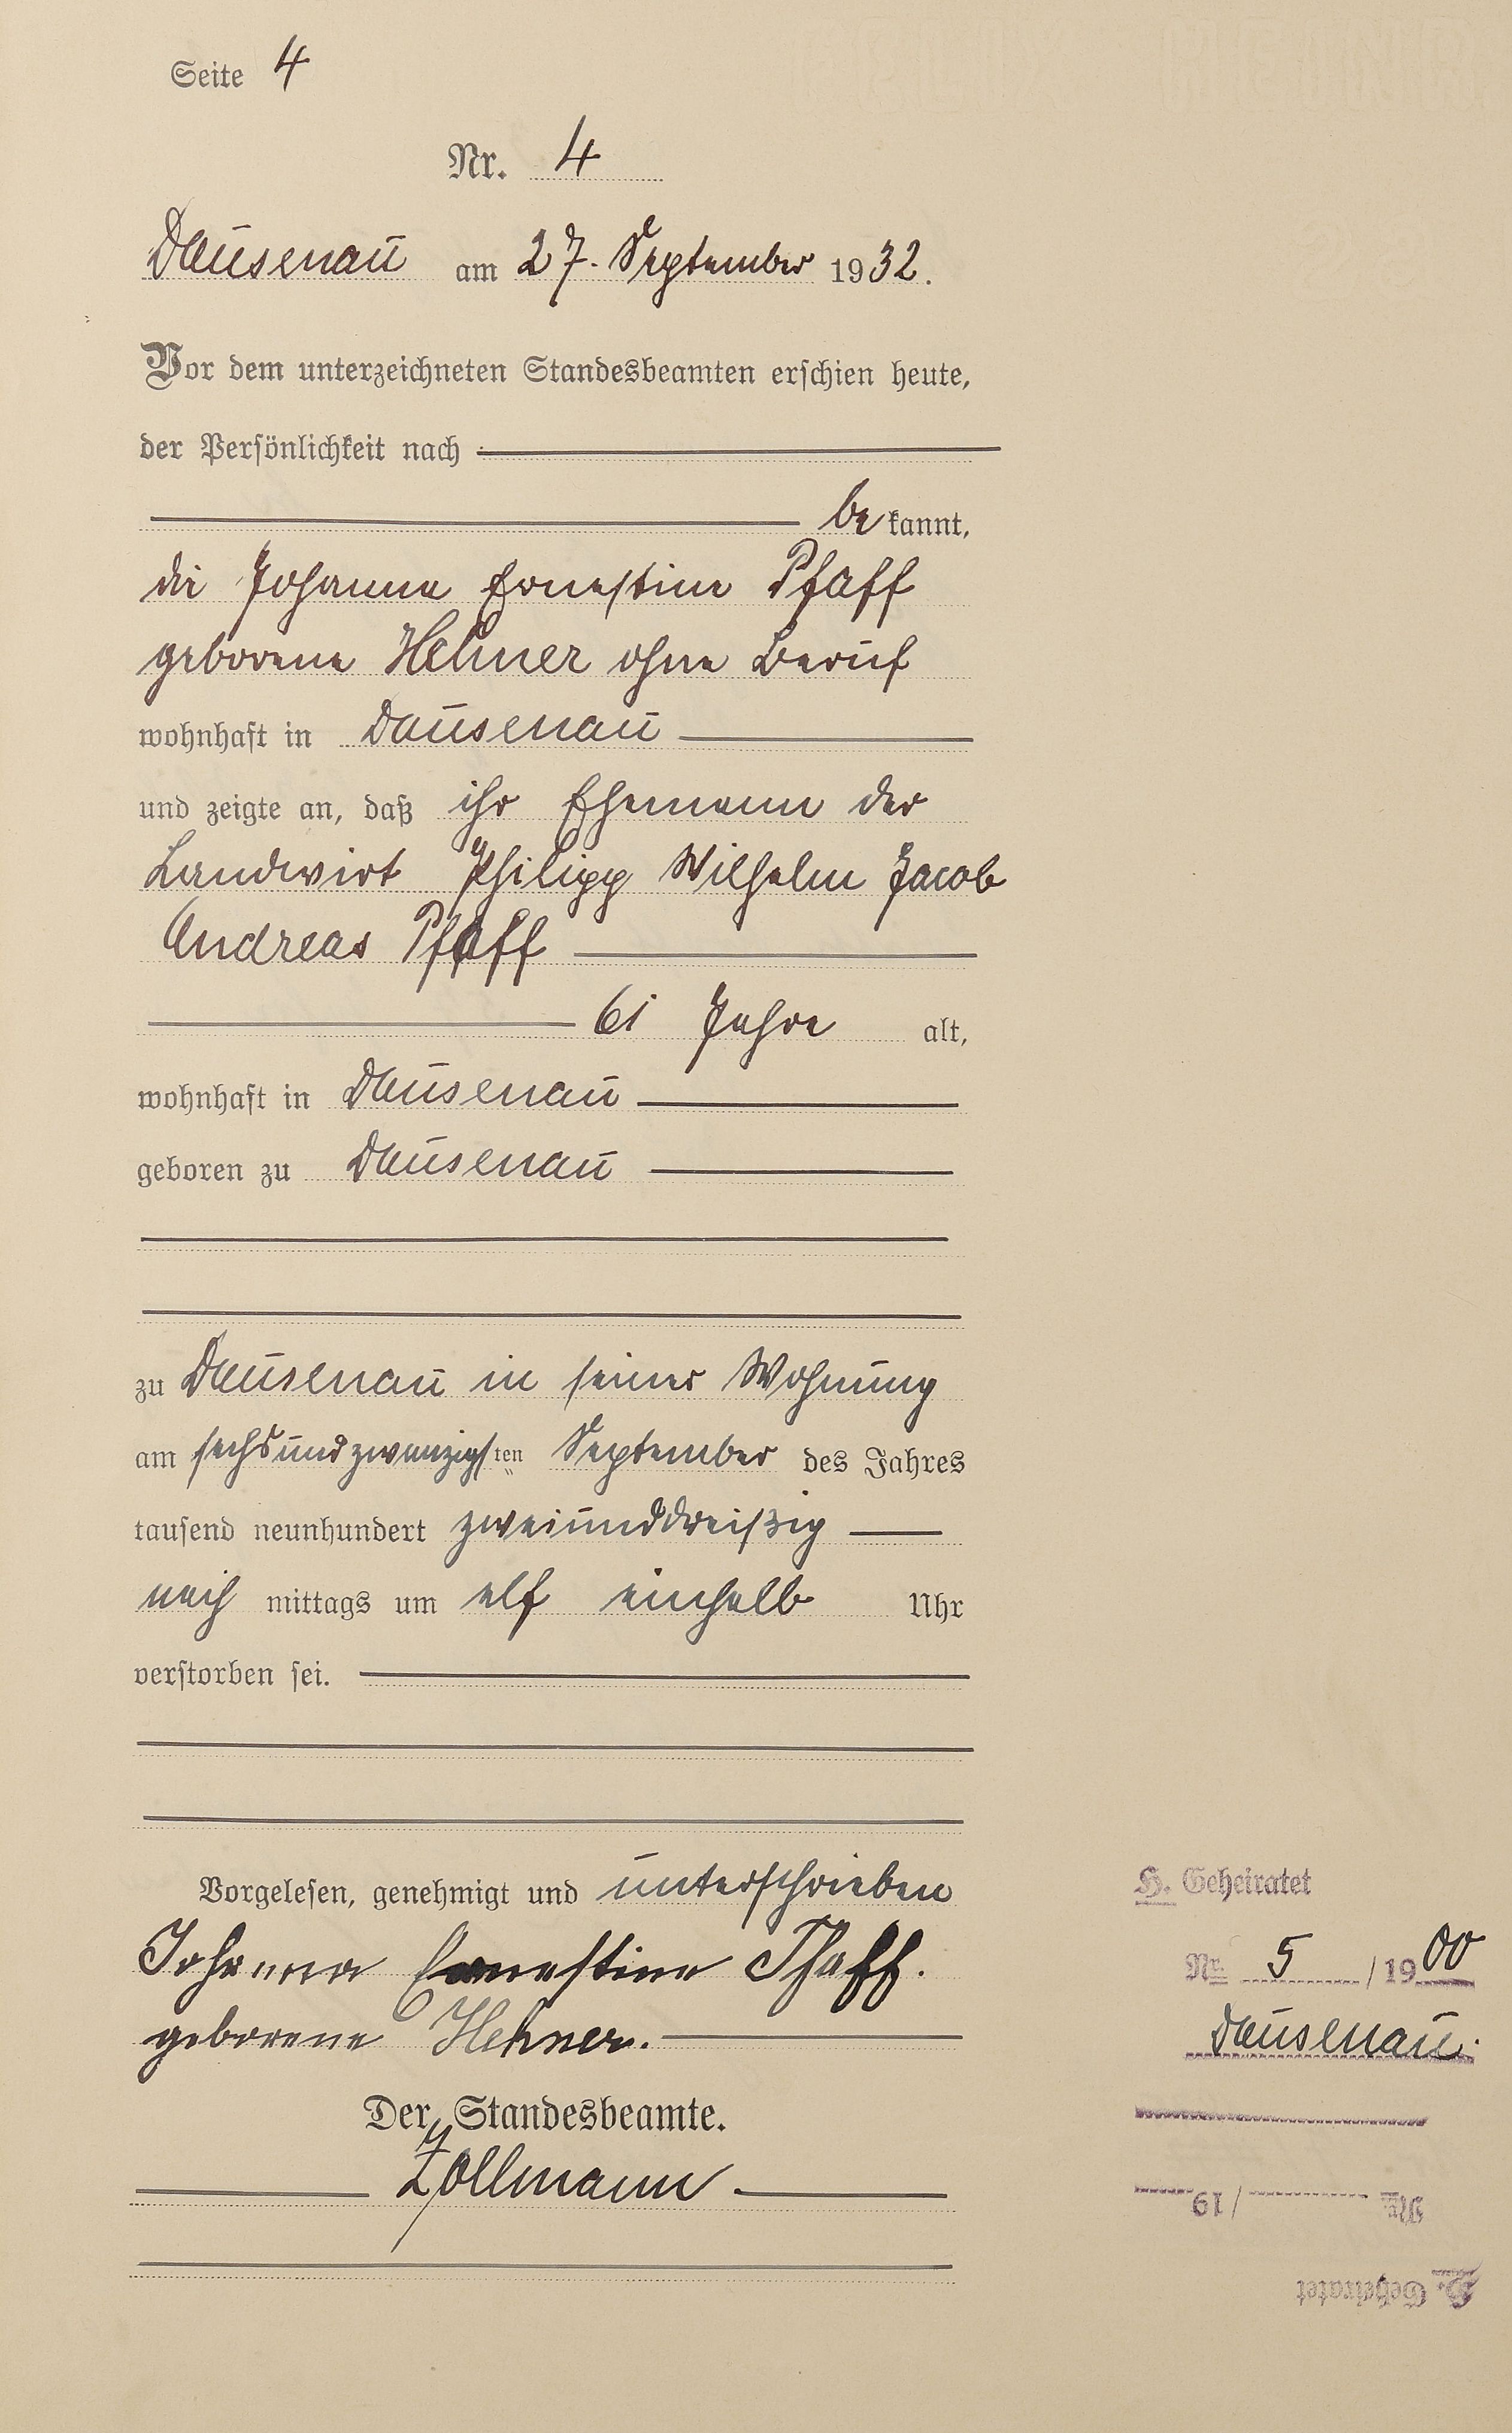 Seite 4
Nr. 4
Dausenau am 27. September 1932.
Vor dem unterzeichneten Standesbeamten erschien heute,
der Persönlichkeit nach
bekannt,
die Johanna Ernestine Pfaff
geborene Hehner ohne Beruf
wohnhaft in Dausenau
und zeigte an, daß ihr Ehemann der
Landwirt Philipp Wilhelm Jacob
Andreas Pfaff
61 Jahre alt,
wohnhaft in Dausenau
geboren zu Dausenau
zu Dausenau in seiner Wohnung
am sechsundzwanzigsten September des Jahres
tausend neunhundert zweiunddreißig
nach mittags um elf einhalb Uhr
verstorben sei.
Vorgelesen, genehmigt und unterschrieben
Johanna Ernestine Pfaff.
geborene Hehner.
Der Standesbeamte.
Zollmann
H. Geheiratet
Nr. 5 / 1900
Dausenau.
Nr. / 19
H. Geheiratet